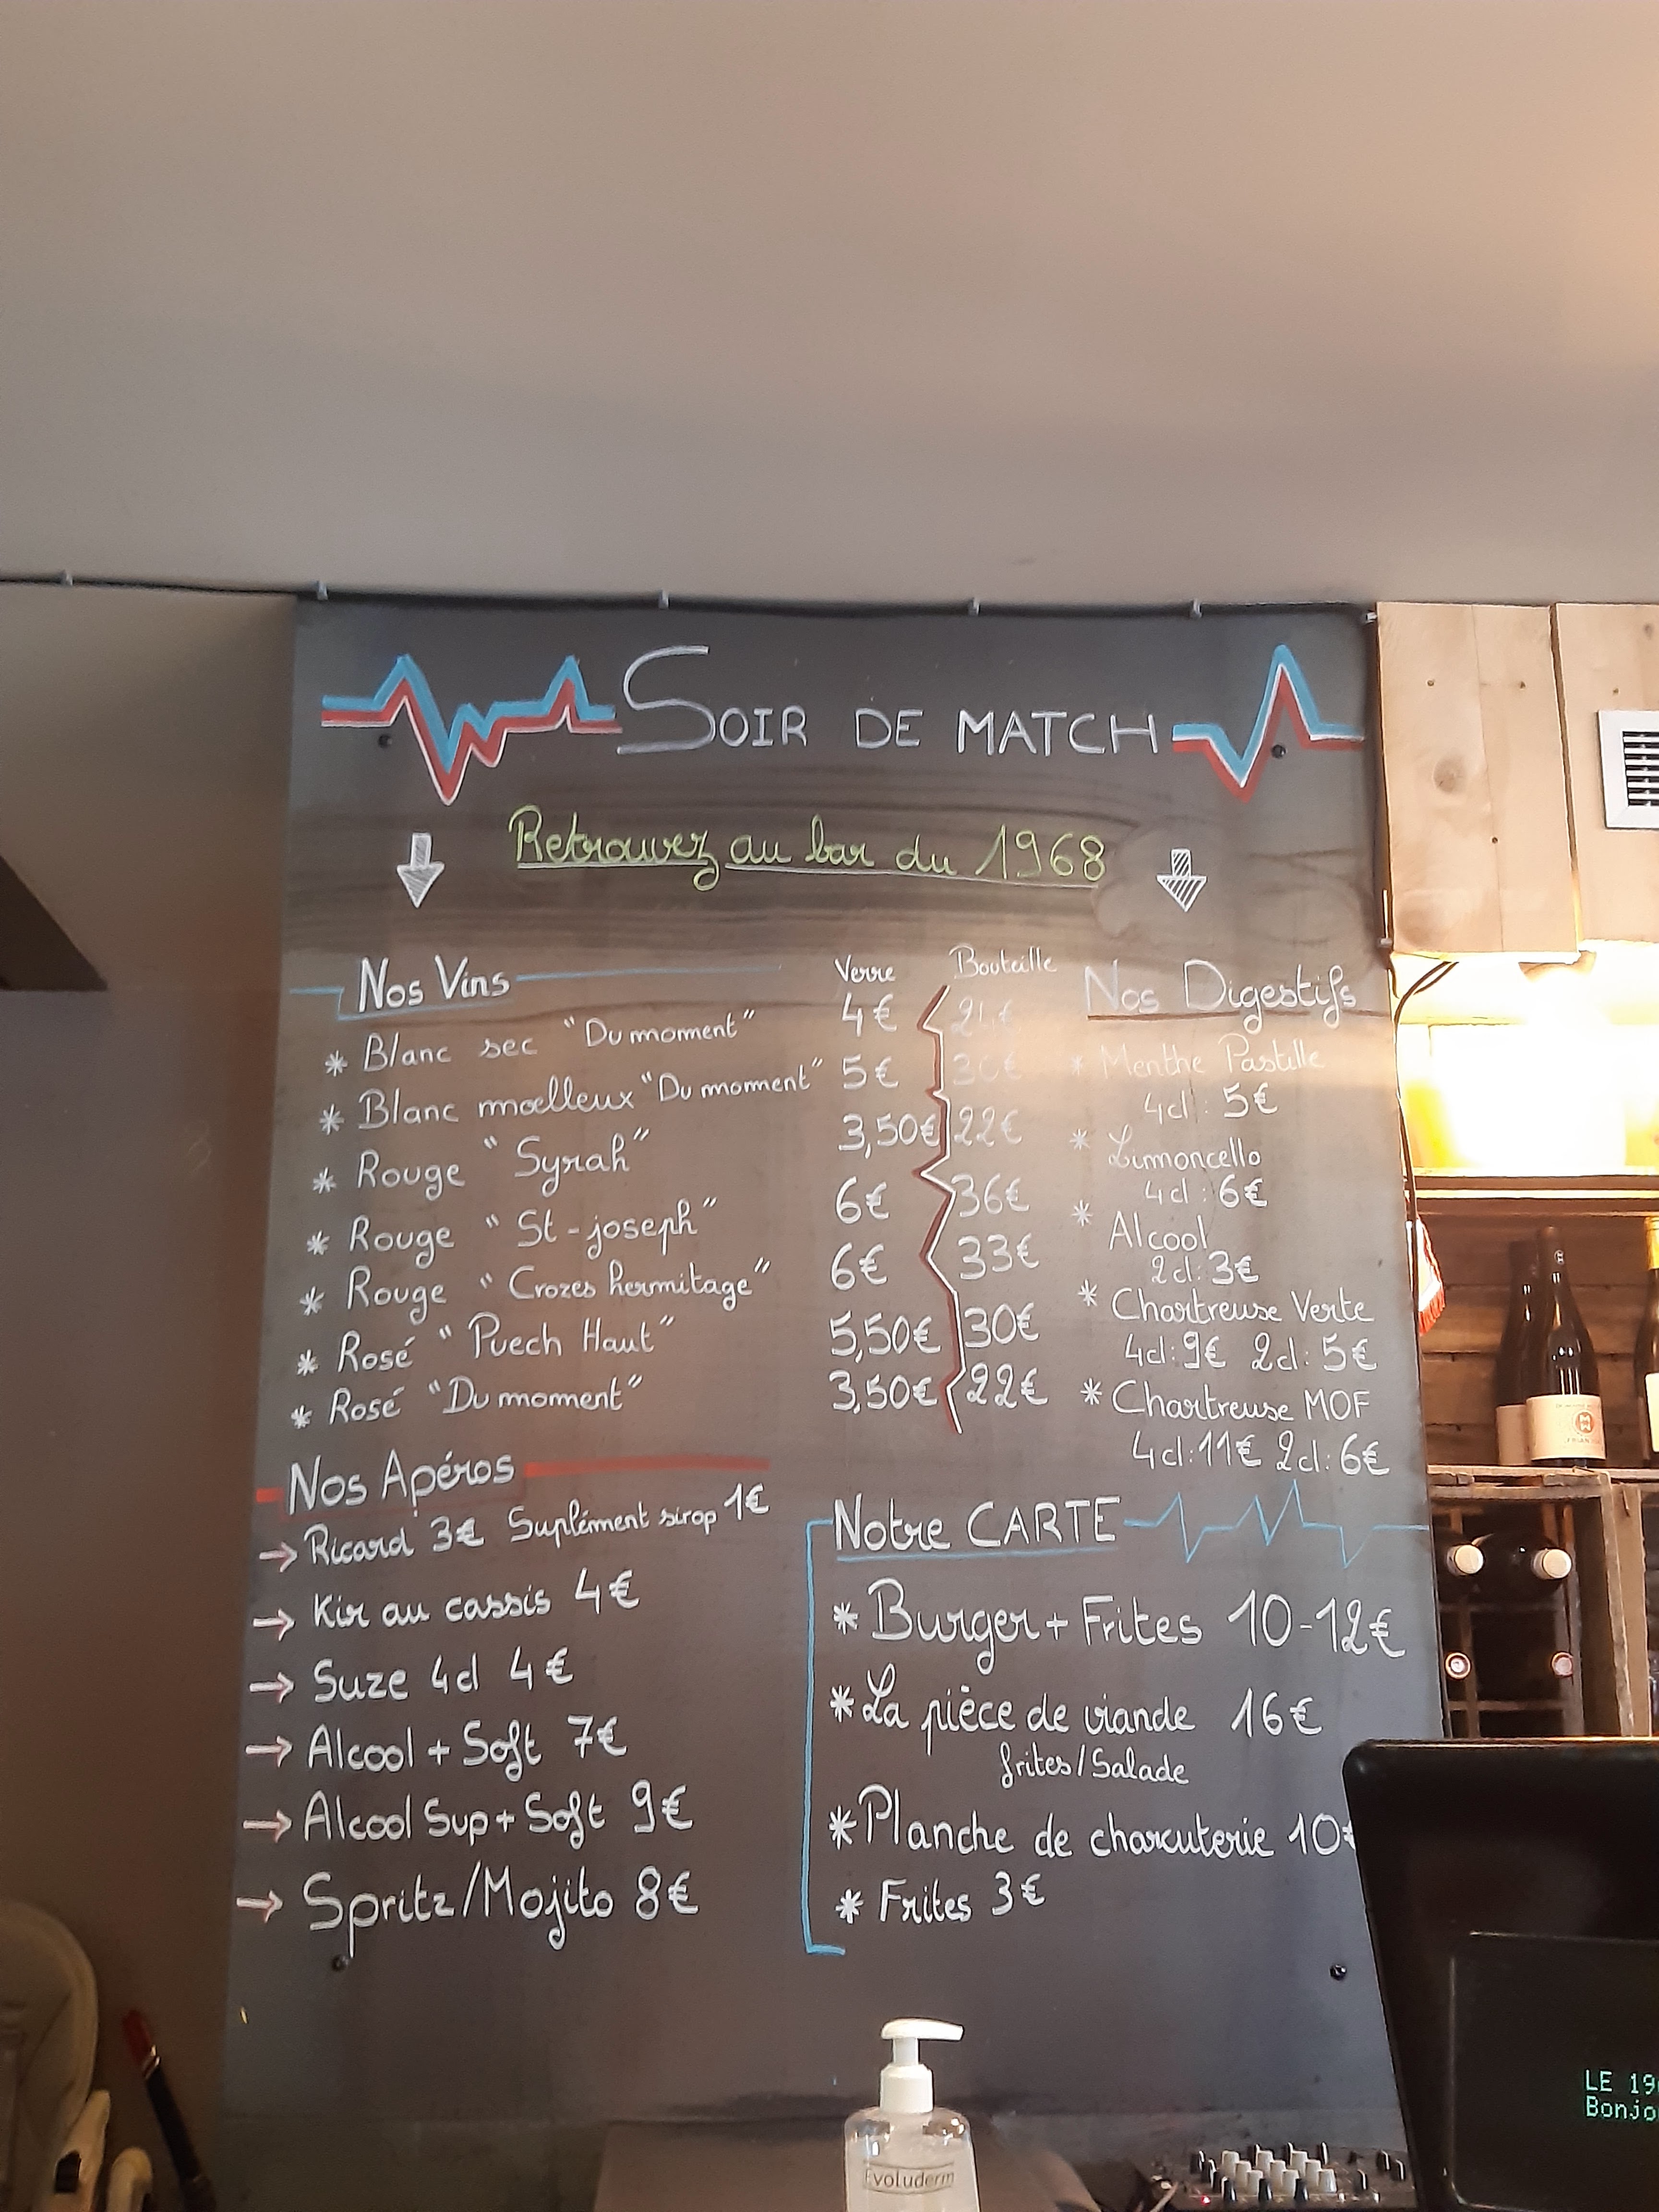 SOIR DE MATCH
Retrouvez au bar du 1968
Nos Vins Verre Bouteille
* Blanc sec "Du moment" 4€ 24€
* Blanc moelleux "Du moment" 5€ 30€
* Rouge "Syrah" 3,50€ 22€
* Rouge "St-joseph" 6€ 36€
* Rouge "Crozes hermitage" 6€ 33€
* Rosé "Puech Haut" 5,50€ 30€
* Rosé "Du moment" 3,50€ 22€
Nos Digestifs
* Menthe Pastille
4cl : 5€
* Limoncello
4cl : 6€
* Alcool
2cl: 3€
* Chartreuse Verte
4cl: 9€ 2cl: 5€
* Chartreuse MOF
4cl: 11€ 2cl: 6€
Nos Apéros
→ Ricard 3€ Suplément sirop 1€
→ Kir au cassis 4€
→ Suze 4cl 4€
→ Alcool + Soft 7€
→ Alcool Sup + Soft 9€
→ Spritz/Mojito 8€
Notre CARTE
* Burger + Frites 10-12€
* La pièce de viande 16€
frites/Salade
* Planche de charcuterie 10€
* Frites 3€
Evoluderm
LE 19
Bonjo